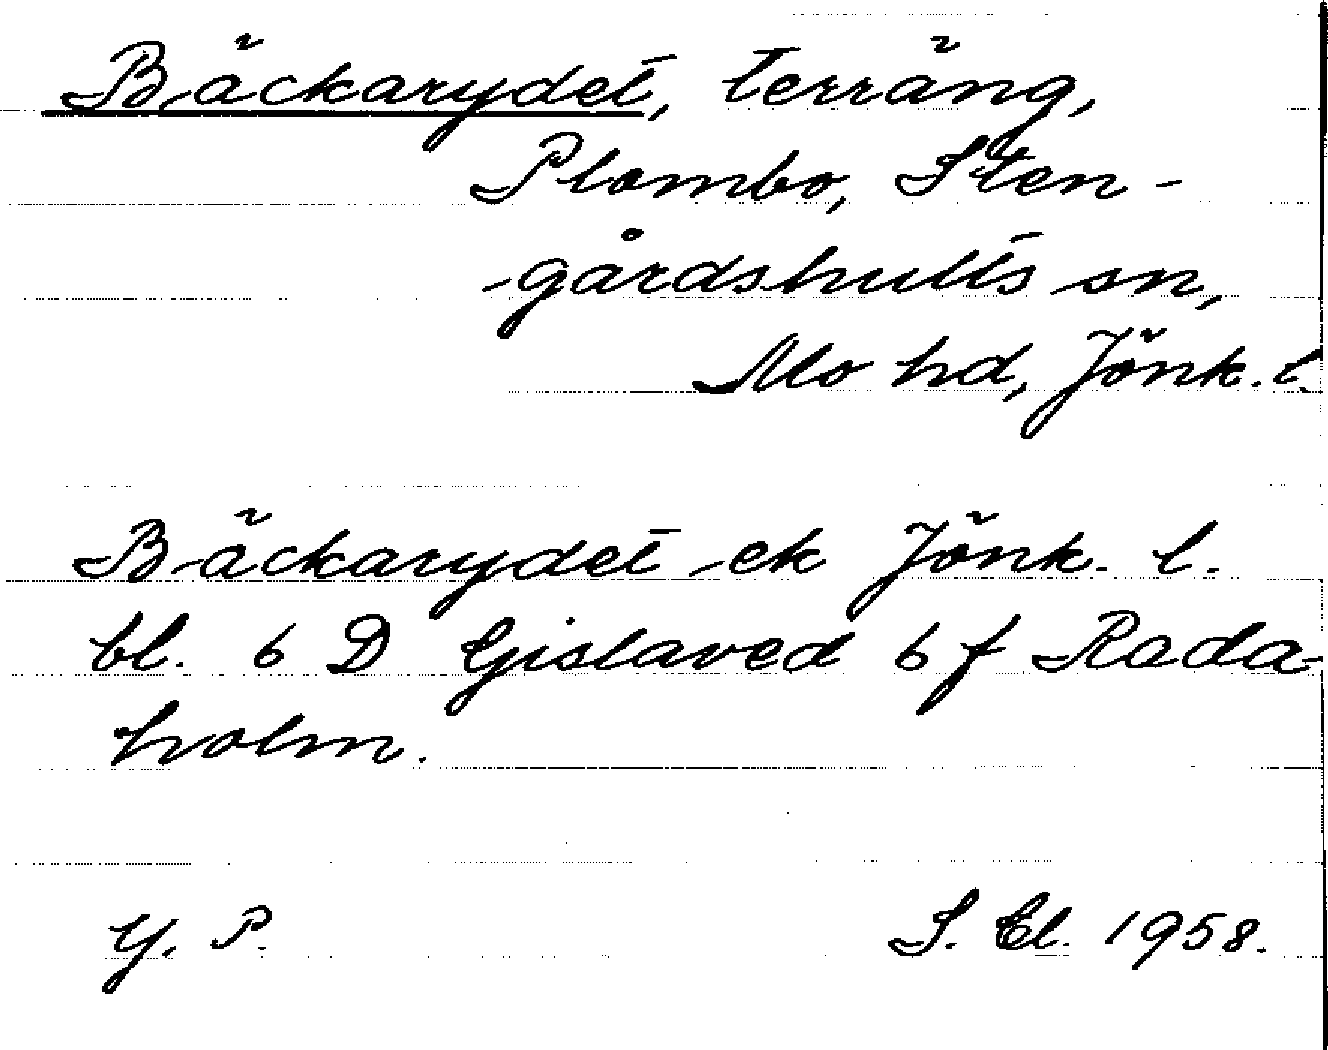 Bäckarydet, terräng,
Plombo, Sten-
gårdshults sn,
Mo hd, Jönk. l.
Bäckarydet ek Jönk. l.
bl. 6 D Gislaved 6 f Rada-
holm.
Y. P. S. El. 1958.